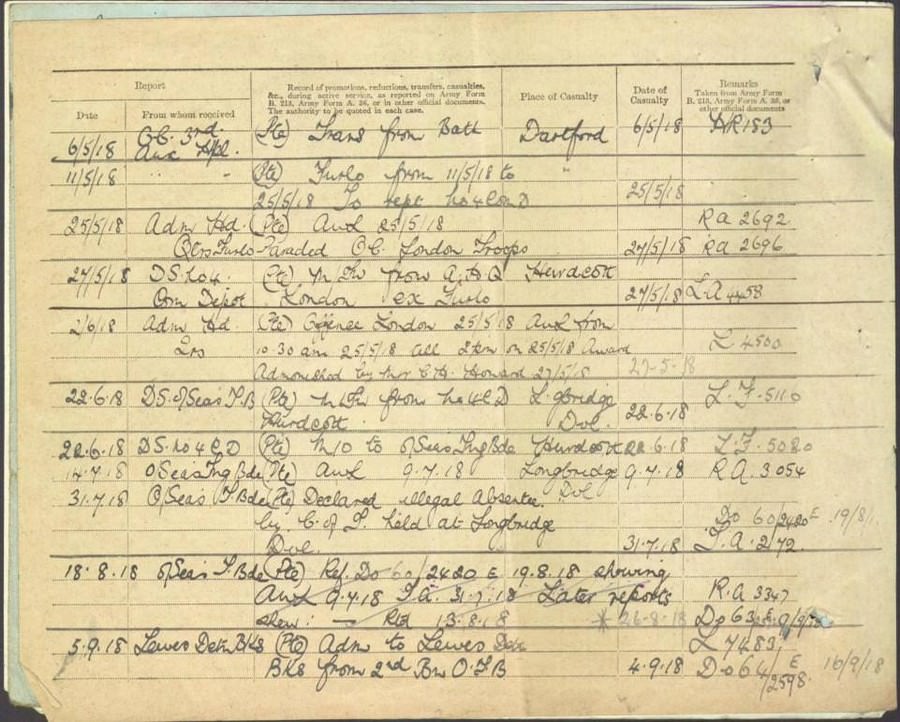 Report
Record of promotions, reductions, transfers, casualties,
&c., during active service, as reported on Army Form
B. 213, Army Form A. 36, or in other official documents.
The authority to be quoted in each case.
Place of Casualty
Date of
Casualty
Remarks
Taken from Army Form
B. 213, Army Form A. 36, or
other official documents
Date From whom received
6/5/18 O.C. 3rd Aux Hpl. (Pte) Trans from Batt Dartford 6/5/18 HR 153
11/5/18 " " (Pte) Furlo from 11/5/18 to "
25/5/18 To rept No 4 Com D 25/5/18
25/5/18 Adm Hd. (Pte) Awl 25/5/18 RA 2692
Qtrs Furlo Paraded O.C. London Troops 27/5/18 RA 2696
27/5/18 DS. No 4. (Pte) M In from A.H.Q Hurdcott
Com Depot London ex Furlo 27/5/18 LA 4458
2/6/18 Adm Hd. (Pte) Offence London 25/5/18 Awl from
10.30 am 25/5/18 till 2 pm on 25/5/18 Award L 4500
Admonished by C. H. Howard 27/5/18 27-5-18
22.6.18 DS. O/Seas T.B (Pte) M In from No 4 C D L'gbridge L.F. 5110
Hurdcott Dvl. 22.6.18
22.6.18 DS. No 4 C D (Pte) M/O to O/Seas Tng Bde Hurdcott 22.6.18 L.F. 5020
14.7.18 O/Seas Tng Bde (Pte) Awl 9.7.18 Longbridge 9.7.18 R.A. 3054
31.7.18 O/Seas T Bde (Pte) Declared illegal Absentee Dvl
by C. of I. held at Longbridge Do 60/2420 E 19/8/
Dvl. 31.7.18 I.A. 2172
18.8.18 O/Seas T Bde (Pte) Ref. Do 60/2420 E 19.8.18 showing
Awl 9.7.18 I.A. 31.7.18 Later reports R.A 3347
shew: — Rtd 13.8.18 * 26-8-18 Do 63
5.9.18 Lewes Detn Bks (Pte) Adm to Lewes Detn L 7483,
Bks from 2nd Bn O.T.B 4.9.18 Do 64/2598 E 16/9/18